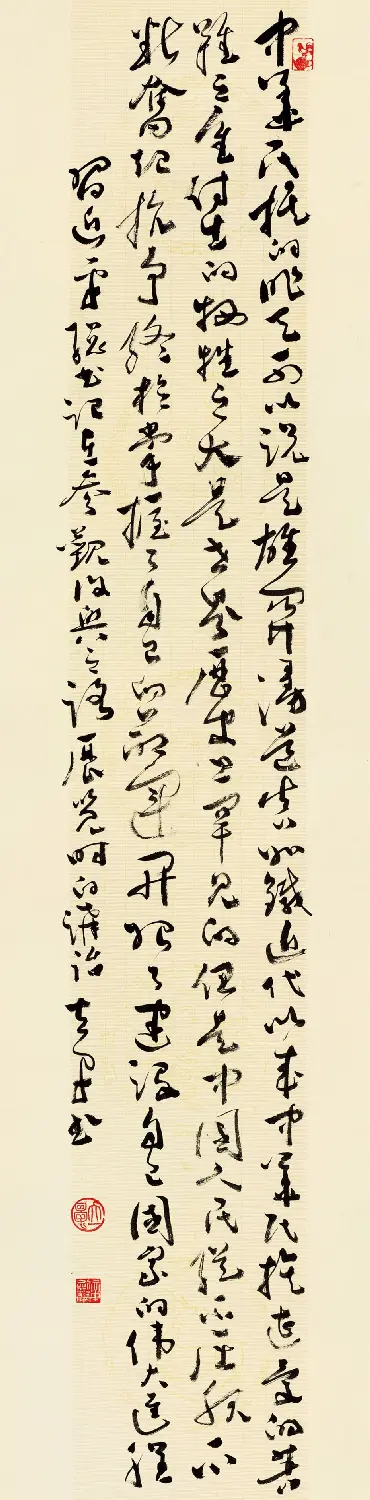 中华民族的昨天可以说是雄关漫道真如铁近代以来中华民族遭受的苦
难之重付出的牺牲之大是世界历史上罕见的但是中国人民从不屈服不
断奋起抗争终于掌握了自己的命运开始了建设自己国家的伟大进程
习近平总书记在参观复兴之路展览时的讲话 书